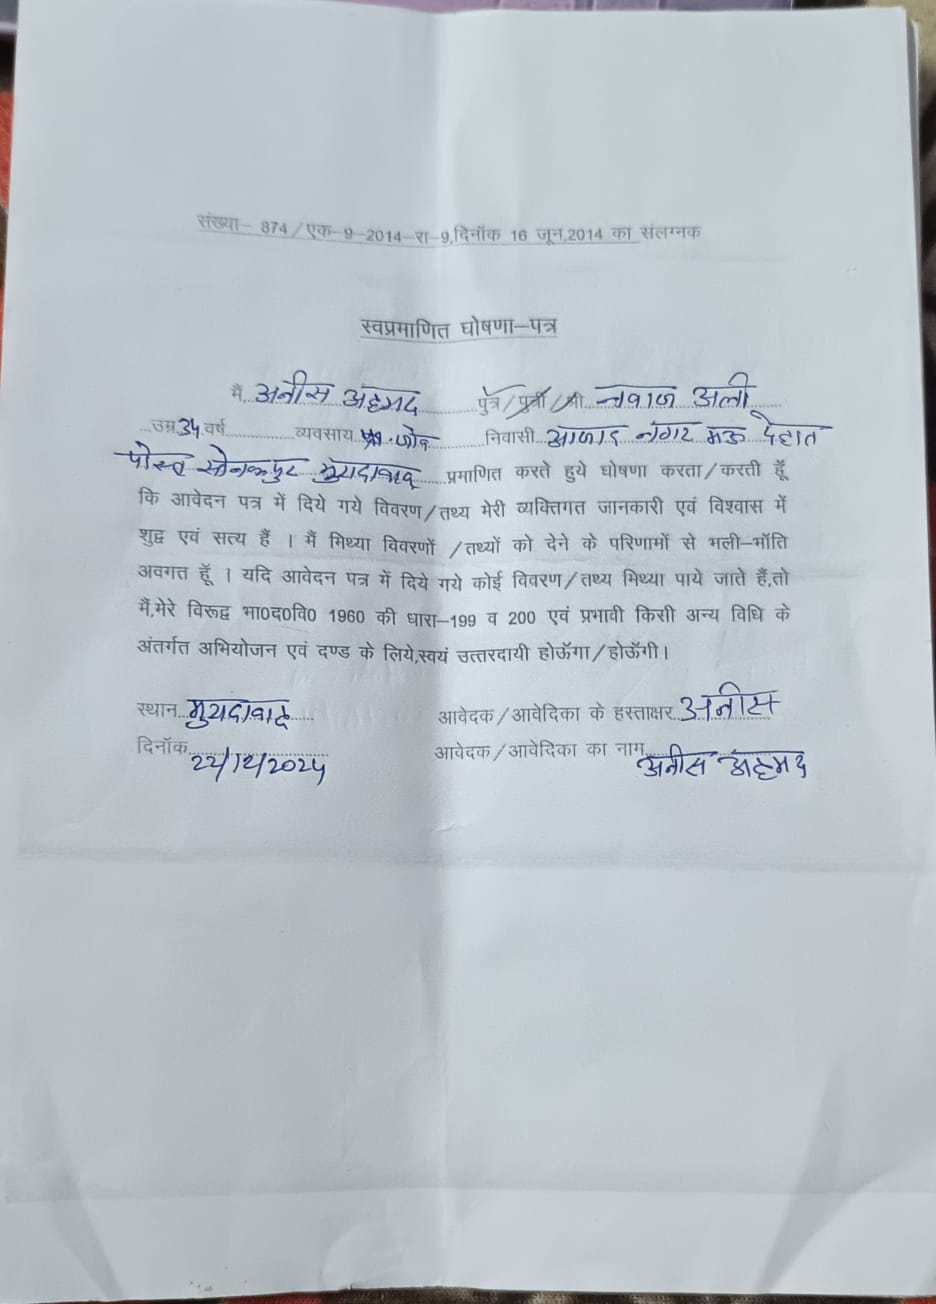 संख्या- 874/एक-9-2014-रा-9,दिनॉक 16 जून,2014 का संलग्नक
स्वप्रमाणित घोषणा-पत्र
मैं, अनीस अहमद पुत्र/पुत्री/श्री नवाज अली
उम्र 34 वर्ष व्यवसाय जोब निवासी आजाद नगर मऊ देहात
पोस्ट सोनकपुर मुरादाबाद प्रमाणित करते हुये घोषणा करता/करती हूँ
कि आवेदन पत्र में दिये गये विवरण/तथ्य मेरी व्यक्तिगत जानकारी एवं विश्वास में
शुद्व एवं सत्य हैं । मैं मिथ्या विवरणों /तथ्यों को देने के परिणामों से भली-भॉति
अवगत हूँ । यदि आवेदन पत्र में दिये गये कोई विवरण/तथ्य मिथ्या पाये जाते हैं,तो
मैं,मेरे विरूद्व भा0द0वि0 1960 की धारा-199 व 200 एवं प्रभावी किसी अन्य विधि के
अंतर्गत अभियोजन एवं दण्ड के लिये,स्वयं उत्तरदायी होऊँगा/होऊँगी।
स्थान मुरादाबाद आवेदक/आवेदिका के हस्ताक्षर अनीस
दिनॉक 22/12/2024 आवेदक/आवेदिका का नाम अनीस अहमद